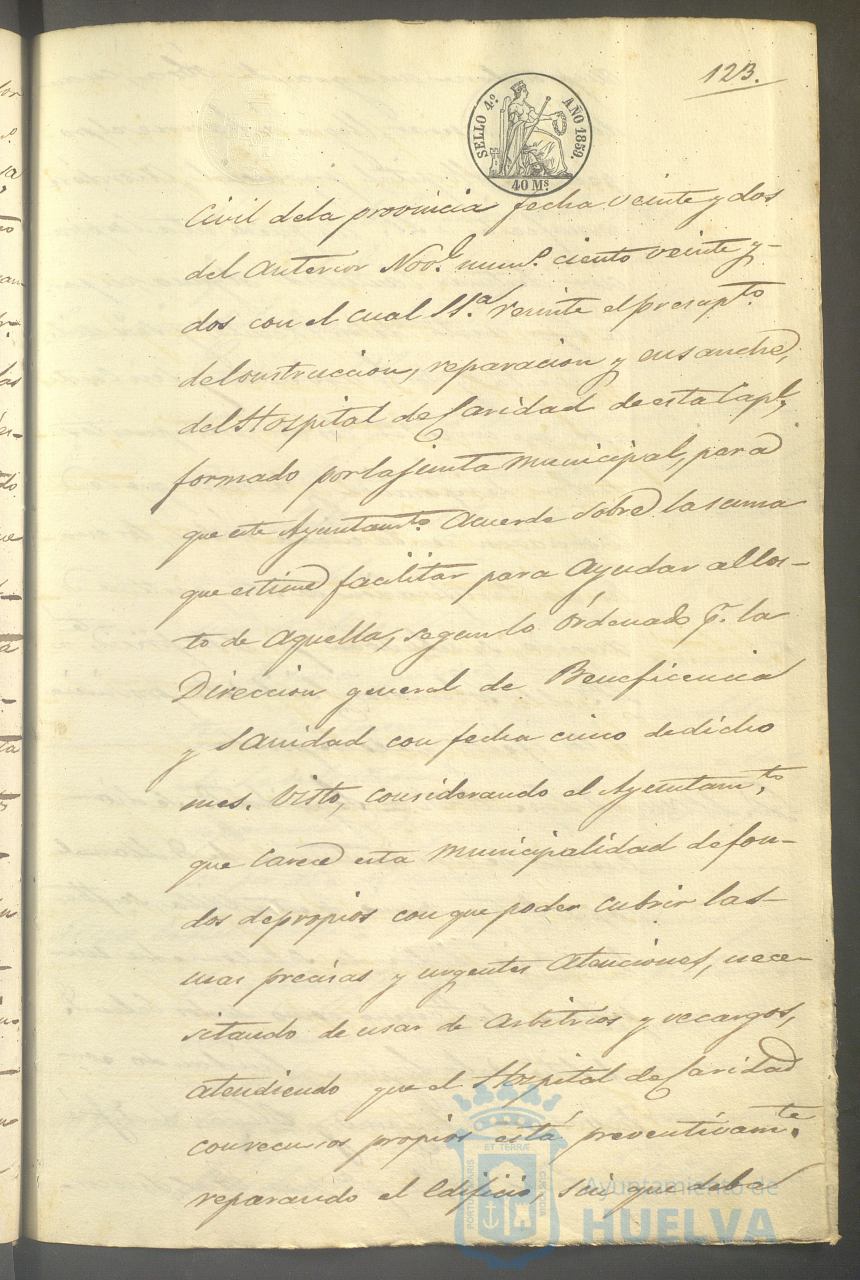 123.
SELLO 4º AÑO 1859.
40 Ms
Civil dela provincia fecha veinte y dos
del anterior Nove. numo. ciento veinte y-
dos con el cual S.Sa. remite el presupto.
de Construccion, reparacion y ensanche,
del Hospital de Caridad de esta Capl.,
formado por la Junta Municipal, para
que este Ayuntamto. acuerde sobre la suma
que estime facilitar para ayudar al Cos-
to de aquella, segun lo órdenado pr. la
Direccion general de Beneficencia
y Sanidad con fecha cinco de dicho
mes. Visto, considerando el Ayuntamto.,
que carece esta Municipalidad de fon-
dos de propios con que poder cubrir las-
mas precisas y urgentes atenciones, nece-
sitando de usar de arbitrios y recargos,
atendiendo que el Hospital de Caridad
con recursos propios está preventivamte.
reparando el edificio, sin que deba
PORTUS MARIS
ET TERRÆ
CUSTODIA
Ayuntamiento de
HUELVA